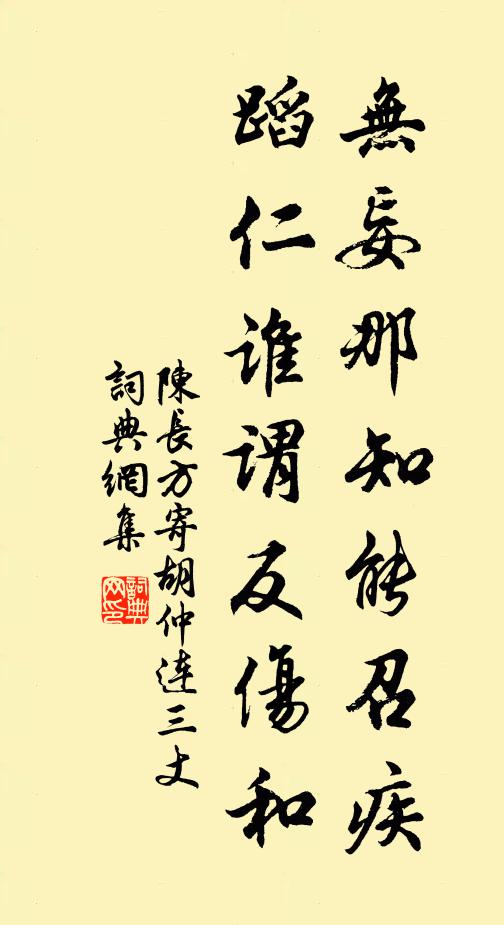 無妄那知能召疾
蹈仁誰謂反傷和
陳長方寄胡仲連三丈
詞典網集
詞典網印